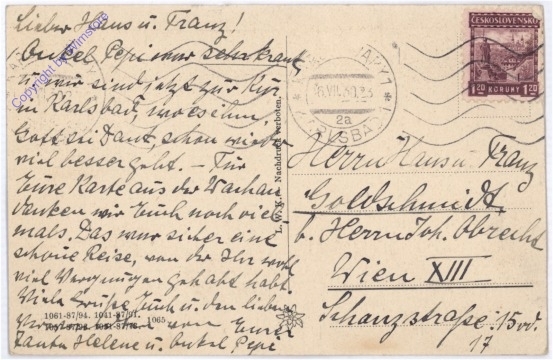 Lieber Hans u. Franz!
Onkel Pepi war sehr krank
u. wir sind jetzt zur Kur
in Karlsbad, wo es ihm,
Gott sei Dank, schon wieder
viel besser geht. – Für
Eure Karte aus der Wachau
danken wir Euch noch viel
mals. Das war sicher eine
schöne Reise, von der Ihr wohl
viel Vergnügen gehabt habt.
Viele Grüße Euch u. den lieben
von Eurer
Tante Helene u. Onkel Pepi
1061-87/94. 1041-87/91.
1065
L. W. K. Nachdruck verboten.
ČESKOSLOVENSKO
1.20 KORUNY 1.20
KARLOVY VARY 1
6.VII.30.23
2a
KARLSBAD 1
Herrn Hans u. Franz
Goldschmidt
b. Herrn Joh. Obrecht
Wien XIII
Schanzstraße: 15
17
copyright by oldthing